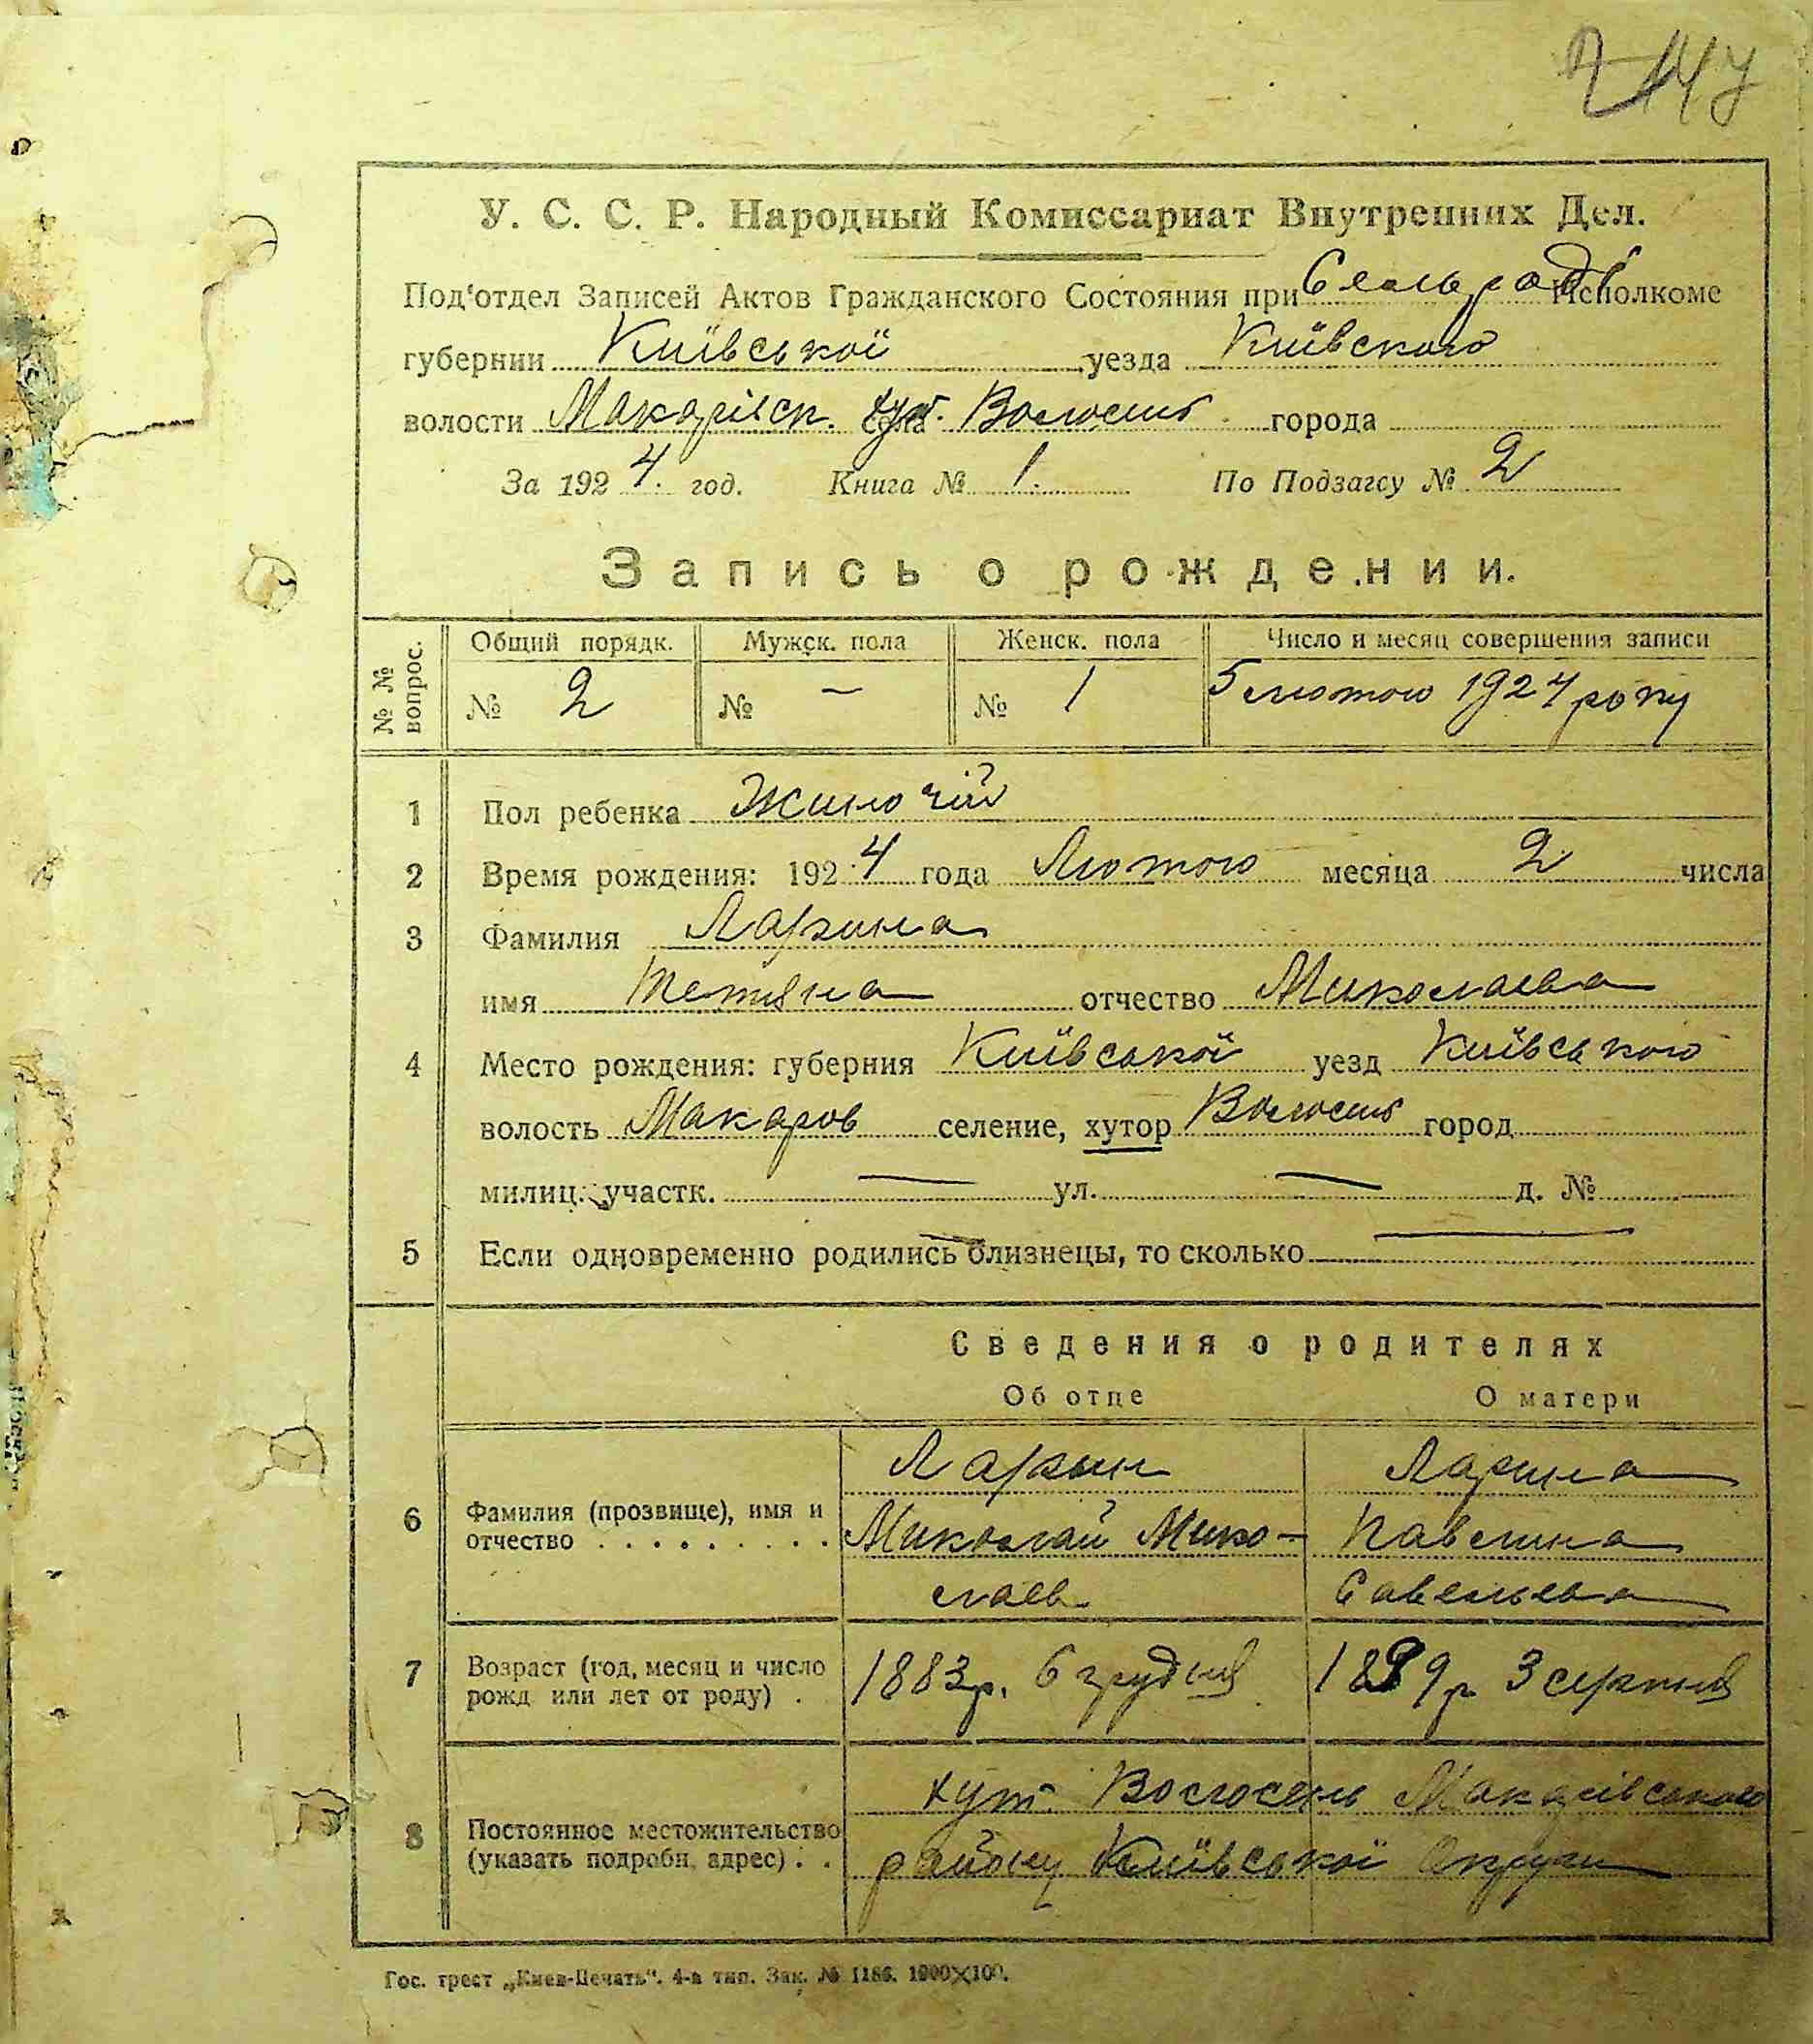 147
У. С. С. Р. Народный Комиссариат Внутренних Дел.
Под'отдел Записей Актов Гражданского Состояния при Сельраді Исполкоме
губернии Київської уезда Київского
волости Макарівск. хут. Волосень города
За 1924. год. Книга № 1. По Подзагсу № 2
Запись о рождении.
№ № вопрос. Общий порядк. Мужск. пола Женск. пола Число и месяц совершения записи
№ 2 № — № 1 5 лютого 1924 року
1 Пол ребенка Жиночій
2 Время рождения: 1924 года Лютого месяца 2 числа
3 Фамилия Ларина
имя Тетяна отчество Миколаева
4 Место рождения: губерния Київської уезд Київського
волость Макаров селение, хутор Волосень город
милиц. участк. — ул. — д. №
5 Если одновременно родились близнецы, то сколько —
Сведения о родителях
Об отце О матери
Ларин Ларина
6 Фамилия (прозвище), имя и Миколай Мико- Павлина
отчество . . . . . . . . . лаев Савельева
7 Возраст (год, месяц и число 1883р. 6 грудня 1889р 3 серпня
рожд или лет от роду) .
хут. Волосень Макарівського
8 Постоянное местожительство
(указать подробн. адрес) . . району Київської Округи
Гос. трест „Киев-Печать". 4-а тип. Зак. № 1186. 1000×100.